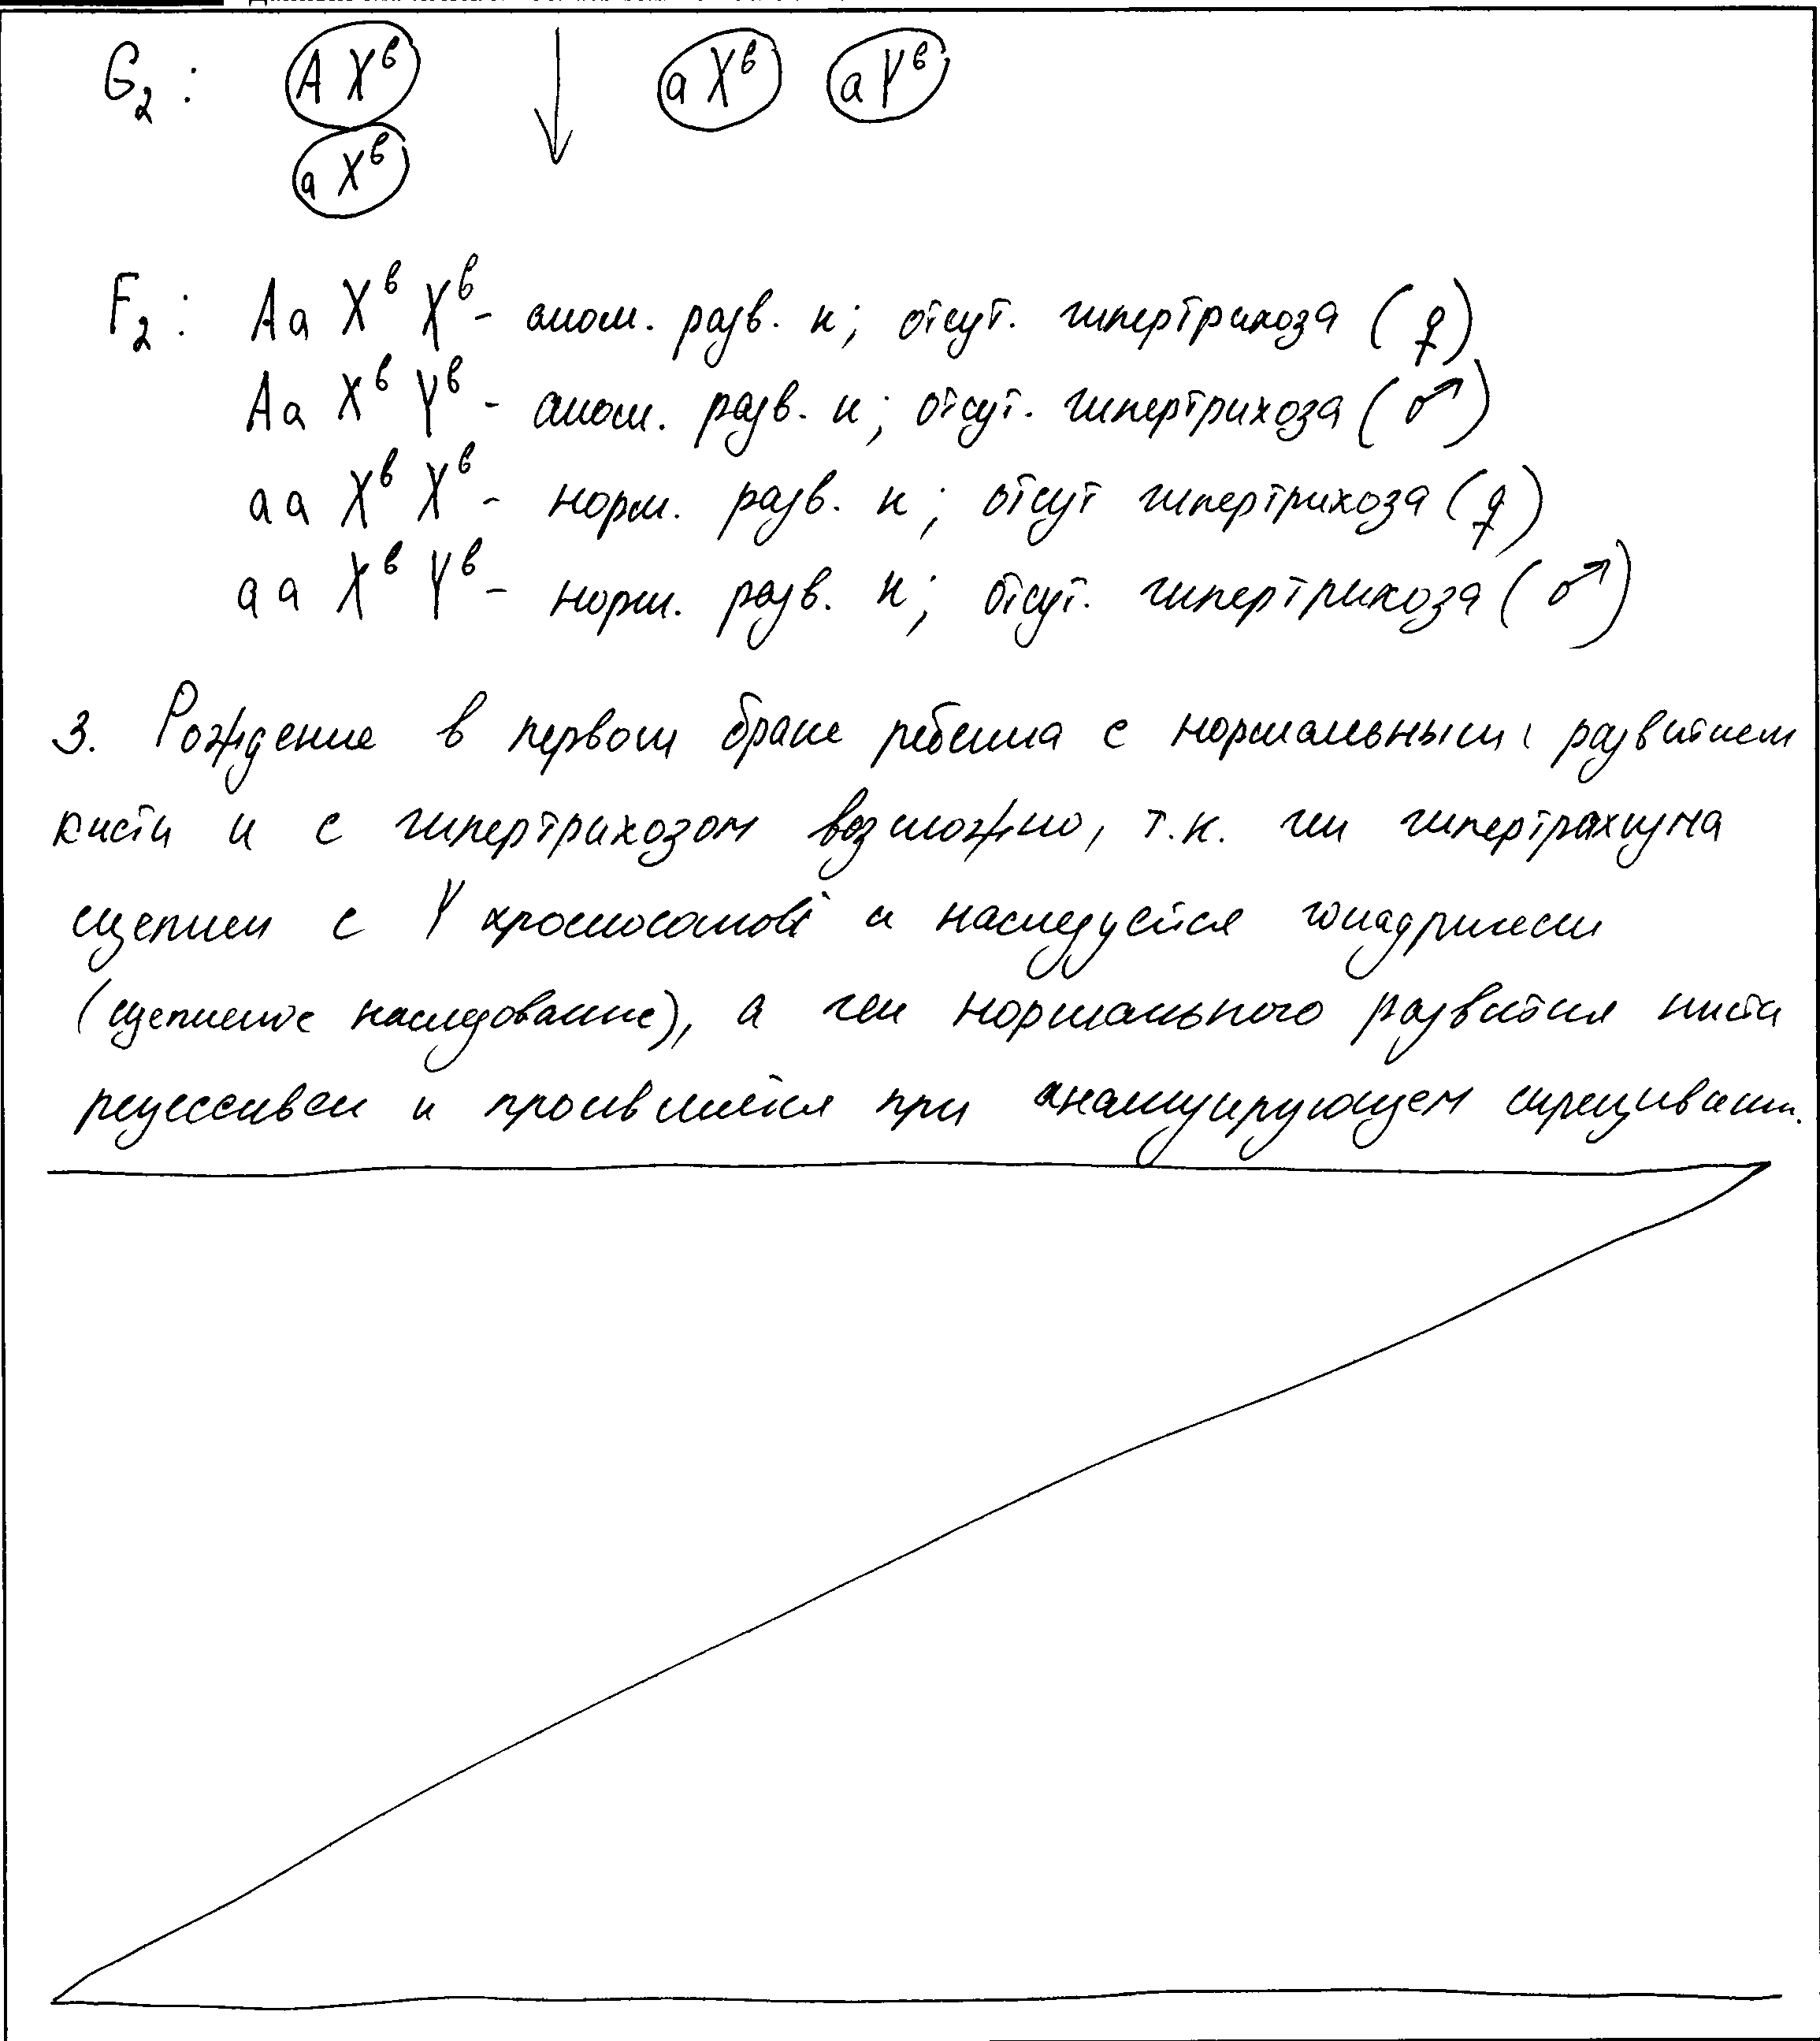 G₂ : A Xᵇ ↓ a Xᵇ a Yᵇ
a Xᵇ
F₂ : Aa Xᵇ Xᵇ - аном. разв. к ; отсут. гипертрихоза ( ♀ )
Aa Xᵇ Yᵇ - аном. разв. к ; отсут. гипертрихоза ( ♂ )
aa Xᵇ Xᵇ - норм. разв. к ; отсут гипертрихоза ( ♀ )
aa Xᵇ Yᵇ - норм. разв. к ; отсут. гипертрихоза ( ♂ )
3. Рождение в первом браке ребенка с нормальным развитием
кисти и с гипертрихозом возможно, т.к. ген
сцеплен с Y хромосомой и наследуется
(сцепленное наследование), а ген нормального развития кисти
рецессивен и проявляется при анализирующем